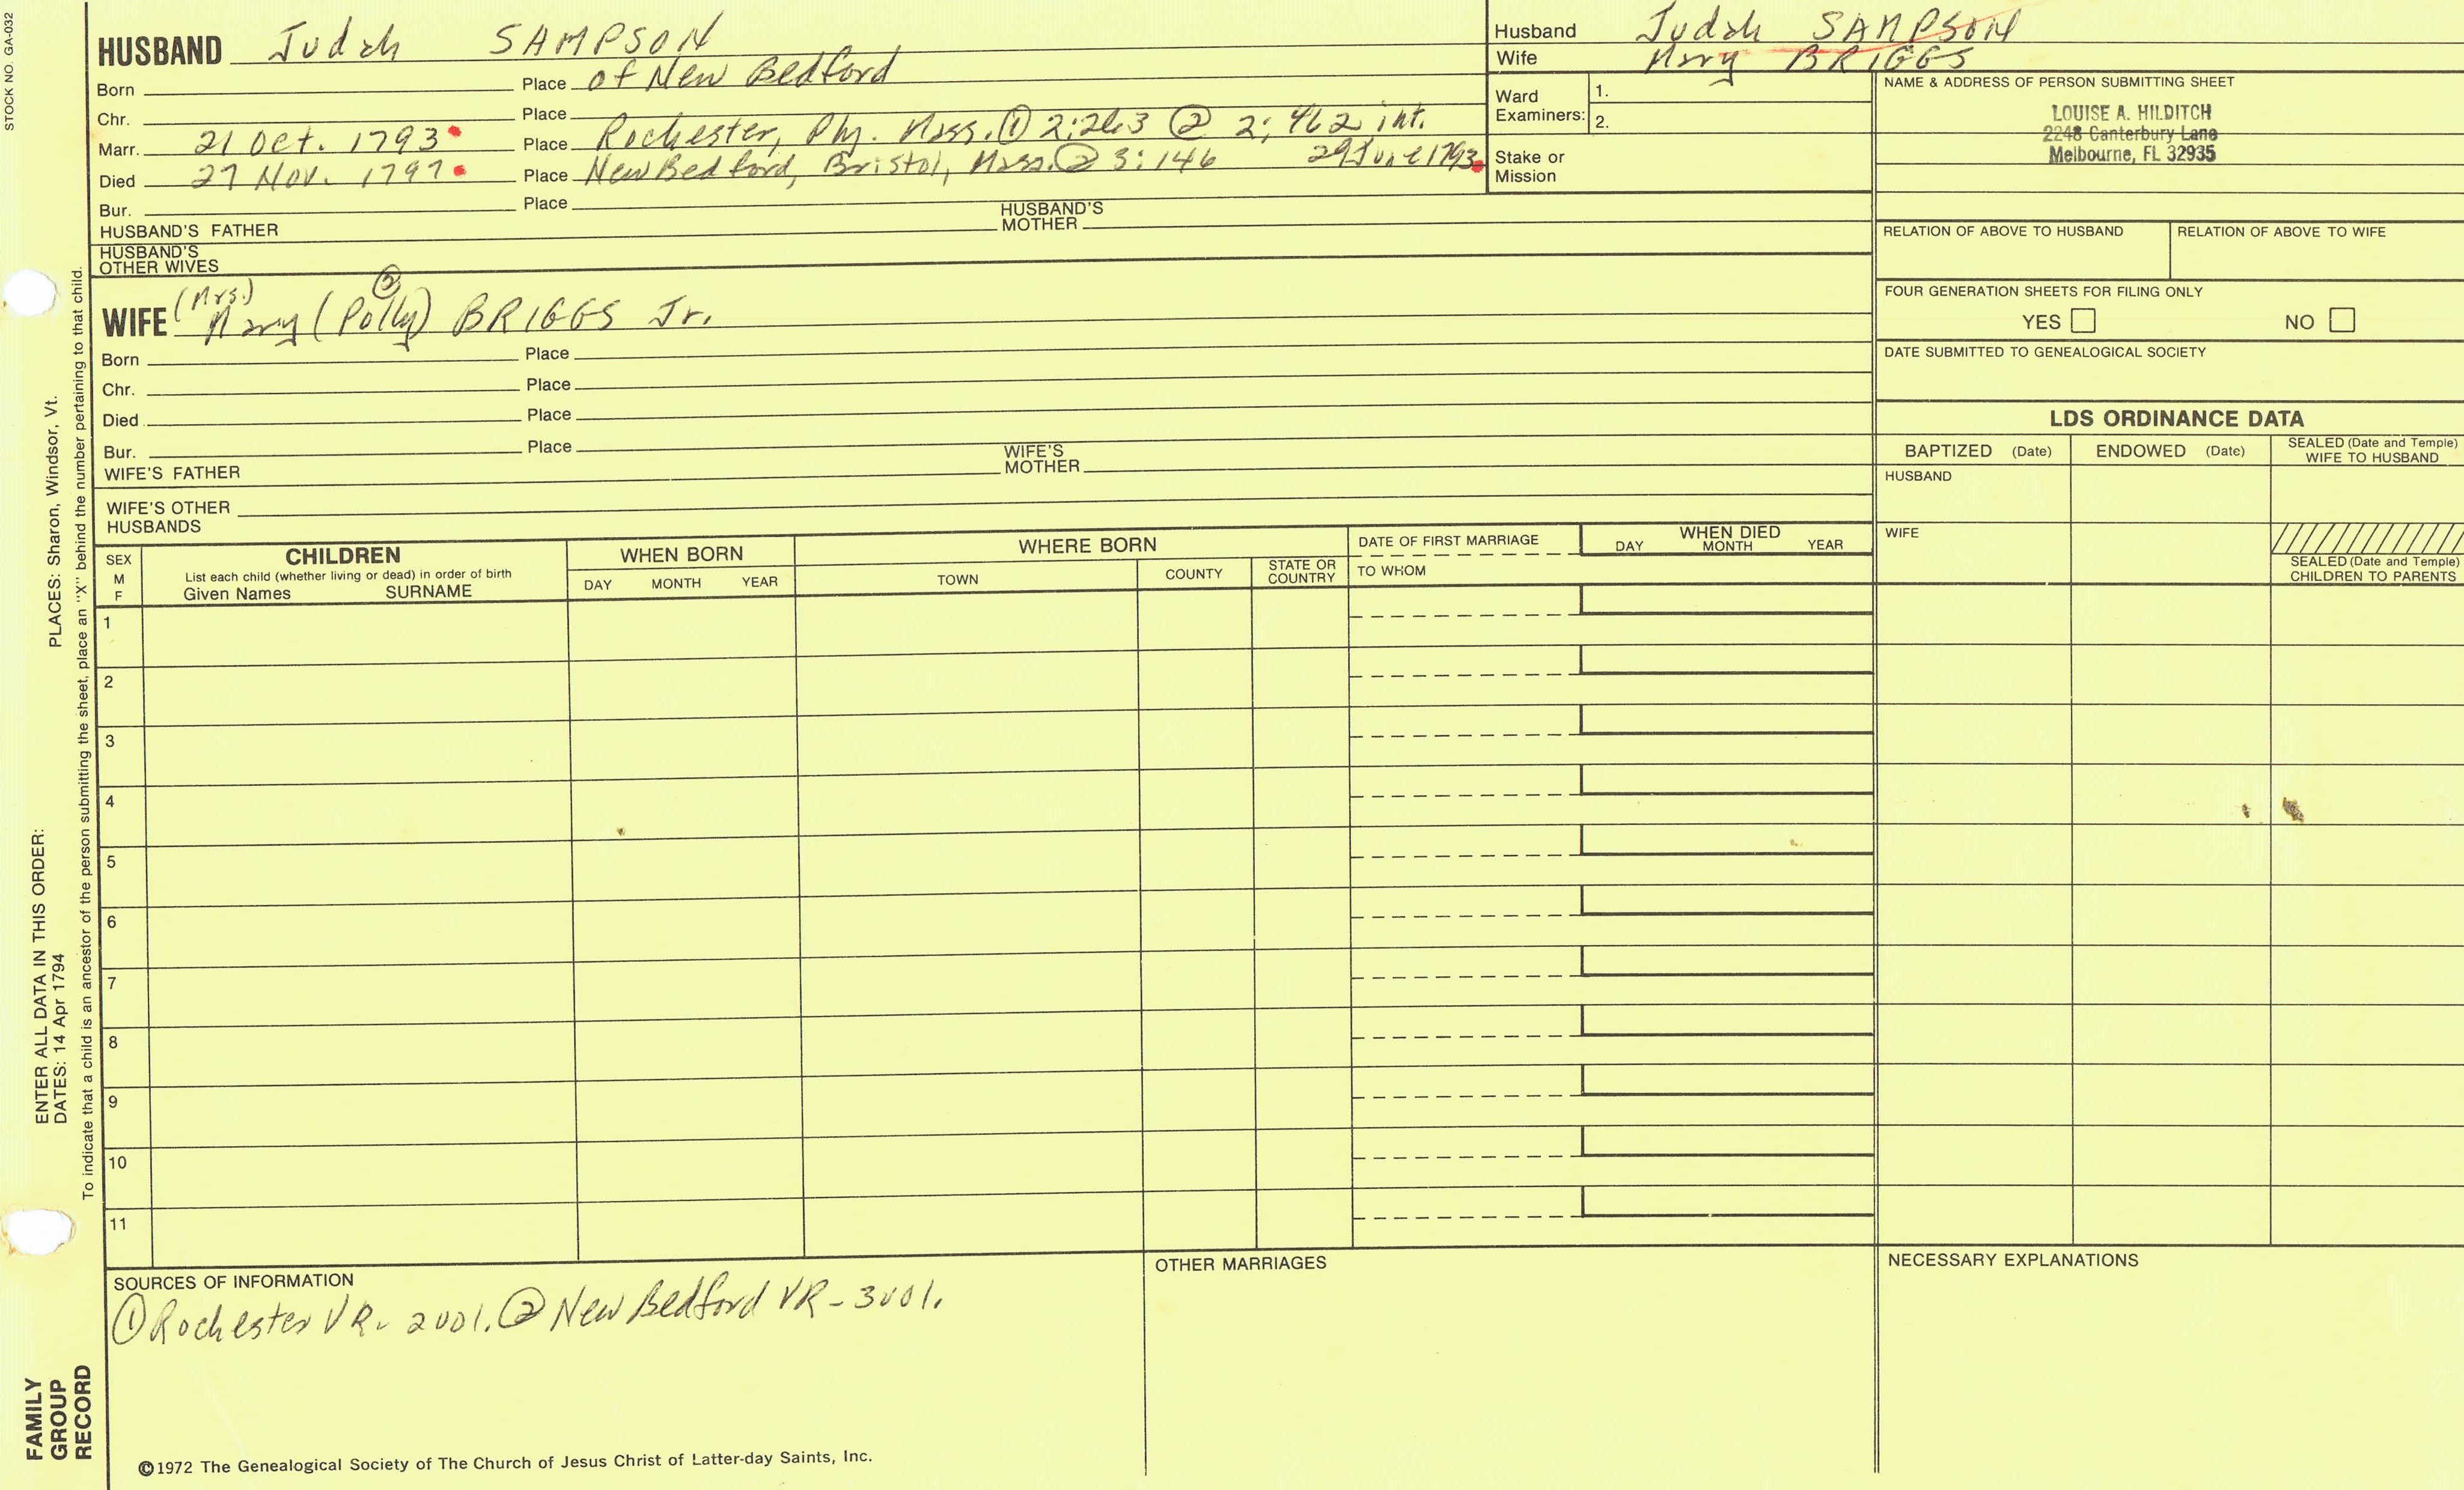 STOCK NO. GA-032
HUSBAND Judah SAMPSON
Born Place of New Bedford
Chr. Place
Marr. 21 Oct. 1793 Place Rochester, Ply. Mass. ① 2:263 ② 2:462 int.
29 June 1793
Died 27 Nov. 1797 Place New Bedford, Bristol, Mass. ② 3:146
Bur. Place
HUSBAND'S FATHER HUSBAND'S MOTHER
HUSBAND'S OTHER WIVES
(Mrs.) ②
WIFE Mary (Polly) BRIGGS Jr.
Born Place
Chr. Place
Died Place
Bur. Place
WIFE'S FATHER WIFE'S MOTHER
WIFE'S OTHER HUSBANDS
Husband Judah SAMPSON
Wife Mary BRIGGS
Ward Examiners: 1.
2.
Stake or Mission
NAME & ADDRESS OF PERSON SUBMITTING SHEET
LOUISE A. HILDITCH
2248 Canterbury Lane
Melbourne, FL 32935
RELATION OF ABOVE TO HUSBAND RELATION OF ABOVE TO WIFE
FOUR GENERATION SHEETS FOR FILING ONLY
YES NO
DATE SUBMITTED TO GENEALOGICAL SOCIETY
LDS ORDINANCE DATA
BAPTIZED (Date) ENDOWED (Date) SEALED (Date and Temple) WIFE TO HUSBAND
HUSBAND
WIFE
SEALED (Date and Temple) CHILDREN TO PARENTS
SEX M F
CHILDREN
List each child (whether living or dead) in order of birth
Given Names SURNAME
WHEN BORN
DAY MONTH YEAR
WHERE BORN
TOWN COUNTY STATE OR COUNTRY
DATE OF FIRST MARRIAGE
TO WHOM
WHEN DIED
DAY MONTH YEAR
1
2
3
4
5
6
7
8
9
10
11
SOURCES OF INFORMATION
① Rochester VR - 2vol. ② New Bedford VR - 3vol.
OTHER MARRIAGES
NECESSARY EXPLANATIONS
©1972 The Genealogical Society of The Church of Jesus Christ of Latter-day Saints, Inc.
FAMILY GROUP RECORD
ENTER ALL DATA IN THIS ORDER:
DATES: 14 Apr 1794
PLACES: Sharon, Windsor, Vt.
To indicate that a child is an ancestor of the person submitting the sheet, place an "X" behind the number pertaining to that child.